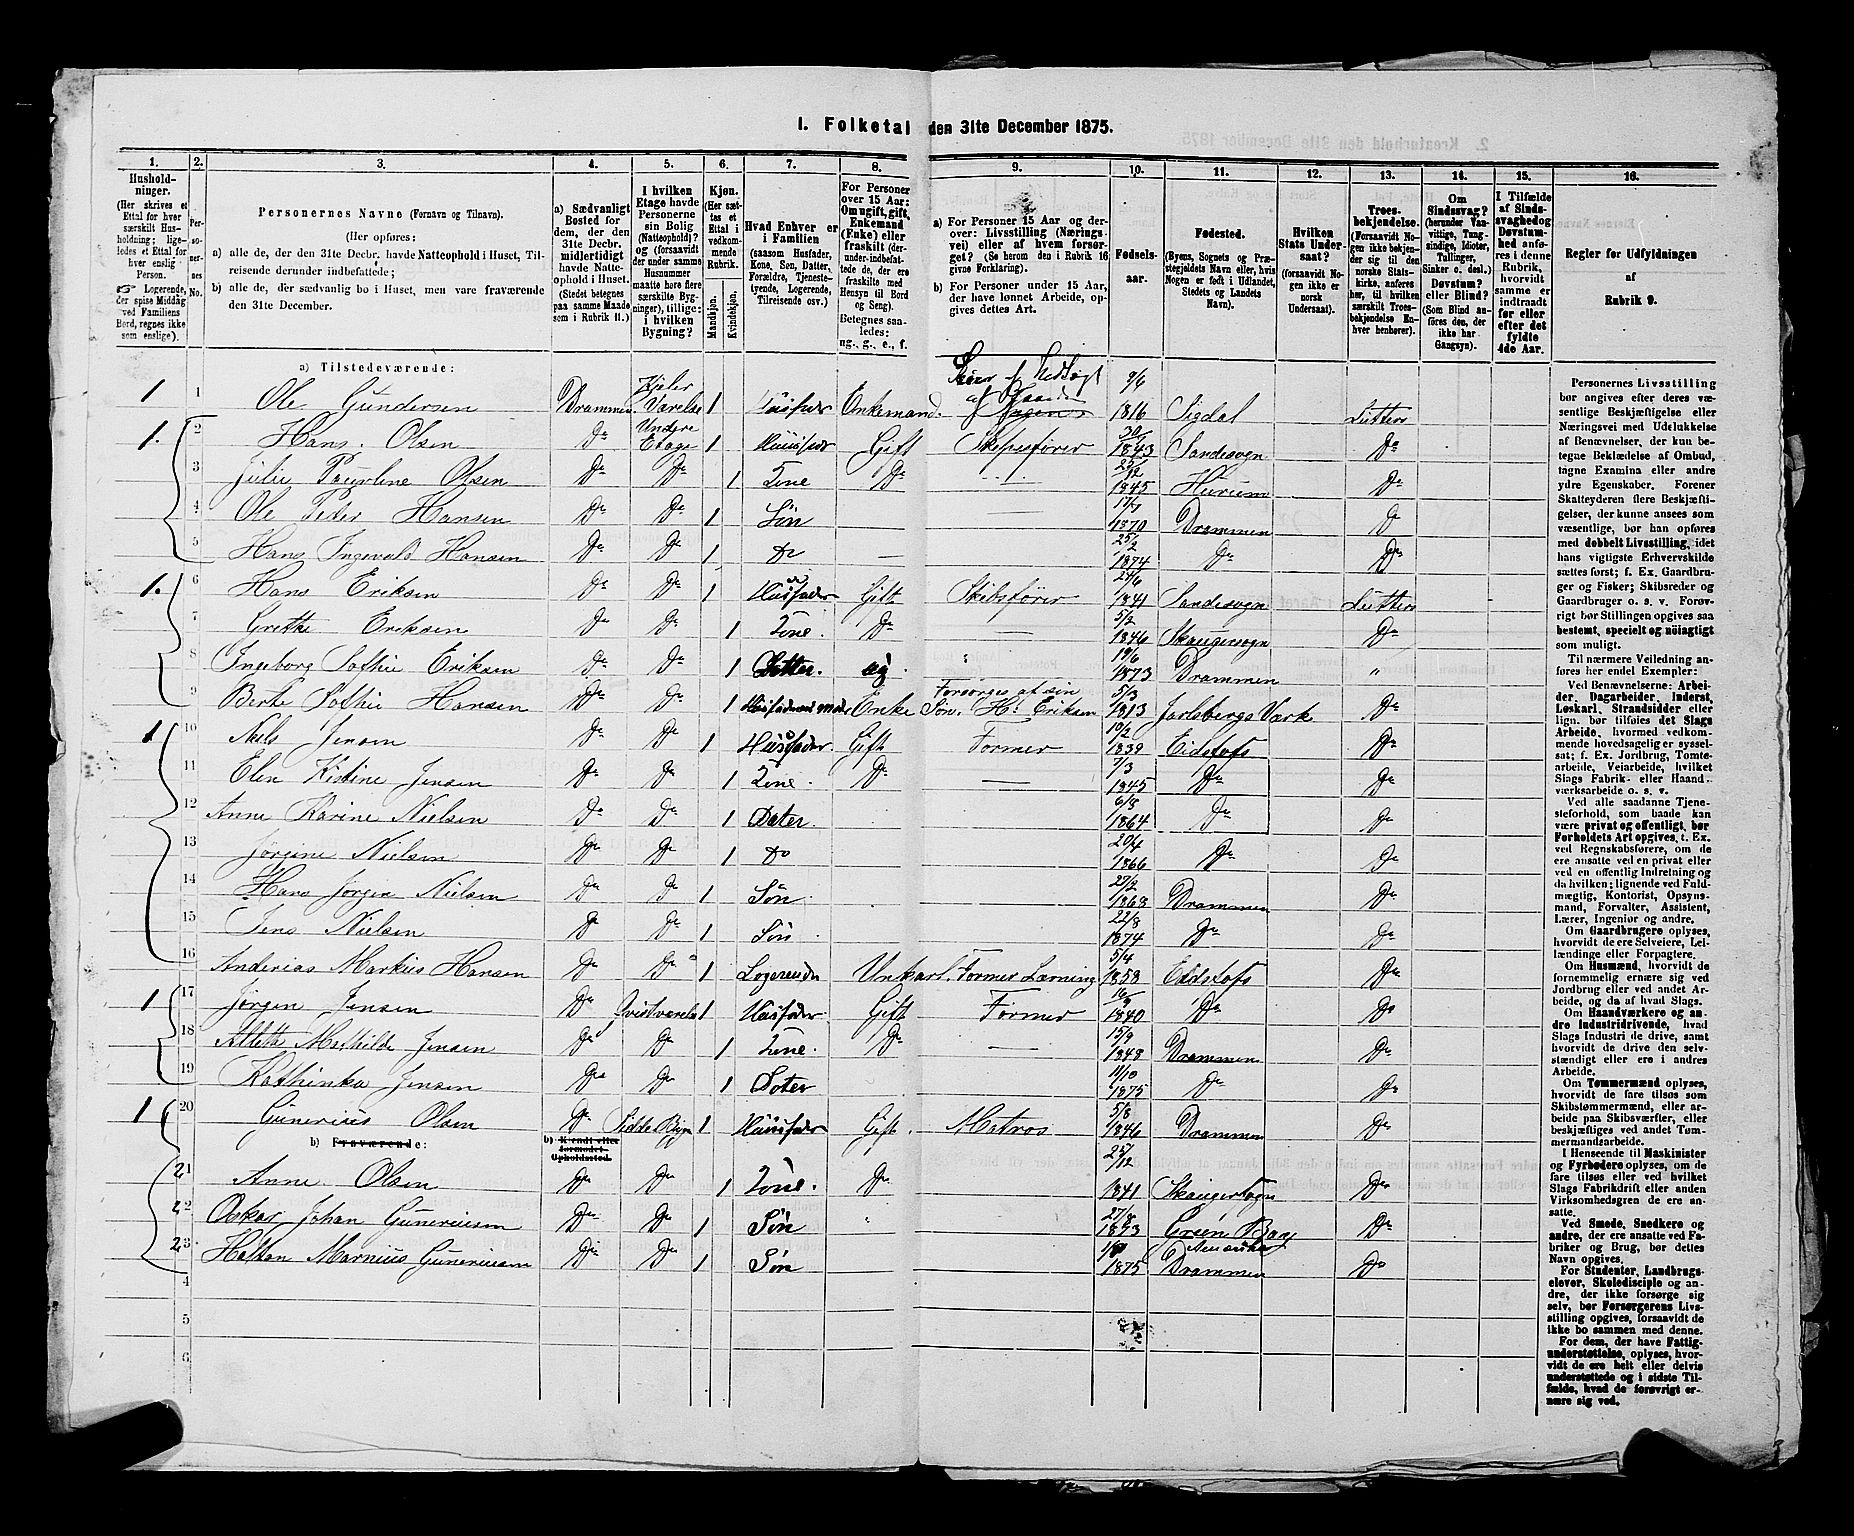 1. Folketal den 31te December 1875.
1. 2. 3. 4. 5. 6. 7. 8. 9. 10. 11. 12. 13. 14. 15. 16.
Husholdninger.
(Her skrives et
Ettal for hver
særskilt Husholdning; ligeledes et Ettal for
hver enslig
Person.
Logerende,
der spise Middag
ved Familiens
Bord, regnes ikke
som enslige).
Personernes No.
Personernes Navne (Fornavn og Tilnavn).
(Her opføres:
a) alle de, der den 31te Decbr. havde Natteophold i Huset, Tilreisende derunder indbefattede;
b) alle de, der sædvanlig bo i Huset, men vare fraværende
den 31te December.
a) Sædvanligt
Bosted for
dem, der den
31te Decbr.
midlertidigt
havde Natteophold i Huset.
(Stedet betegnes
paa samme Maade
som i Rubrik 11.)
I hvilken
Etage havde
Personerne
sin Bolig
(Natteophold)?
og (forsaavidt
der under samme
Husnummer
maatte høre flere
særskilte Bygninger), tillige:
i hvilken
Bygning?
Kjøn.
(Her sættes et
Ettal i
vedkommende
Rubrik.
Mandkjøn.
Kvindekjøn.
Hvad Enhver er
i Familien
(saasom Husfader,
Kone, Søn, Datter,
Forældre, Tjenestetyende, Logerende,
Tilreisende osv.)
For Personer
over 15 Aar:
Om ugift, gift,
Enkemand
(Enke) eller
fraskilt (derunder indbefattede de, der ere
fraskilte med
Hensyn til Bord
og Seng).
Betegnes saaledes:
ug., g., e., f.
a) For Personer 15 Aar og derover: Livsstilling (Næringsvei) eller af hvem forsørget? (Se herom den i Rubrik 16
givne Forklaring).
b) For Personer under 15 Aar,
der have lønnet Arbeide, opgives dettes Art.
Fødselsaar.
Fødested.
(Byens, Sognets og Præstegjeldets Navn eller, hvis
Nogen er født i Udlandet,
Stedets og Landets
Navn).
Hvilken
Stats Undersaat?
(forsaavidt Nogen ikke er
norsk
Undersaat).
Troesbekjendelse.
(Forsaavidt Nogen ikke bekjender sig til den
norske Statskirke, anføres
her, til hvilken
særskilt Troesbekjendelse Enhver henhører).
Om
Sindssvag?
(herunder Vanvittige, Tungsindige, Idioter,
Tullinger,
Sinker o. desl.)
Døvstum?
eller Blind?
(Som Blind anføres den, der
ikke har
Gangsyn).
I Tilfælde
af Sindssvaghed og
Døvstumhed anføres i denne
Rubrik,
hvorvidt
samme er
indtraadt
før eller
efter det
fyldte
4de Aar.
Regler for Udfyldningen
af
Rubrik 9.
a) Tilstedeværende:
1 1 Ole Gundersen Drammen. Kjelervarelse 1 Husfader Enkemand. 9/6 1816 Sigdal Luthers
1. 2 Hans Olsen Do Undere Etage 1 Huusfader Gift Skibsfører 30/ 1843 Sandesogn Do
3 Julie Paurline Olsen Do Do 1 Kone Do 25/12 1845 Hurum Do
4 Ole Peter Hansen Do Do 1 Søn — — 17/7 1870 Drammen Do
5 Hans Ingevald Hansen Do Do 1 do — 25/2 1874 Do Do
1. 6 Hans Eriksen Do Do 1 Husfader Gift Skibsfører 24/6 1841 Sandesogn Luthers
7 Grethe Eriksen Do Do 1 Kone. Do — 5/2 1846 Skaugersogn Do
8 Ingeborg Sofhie Eriksen Do Do 1 Dotter. ug " 19/6 1873 Drammen "
9 Berte Sofhie Hansen Do Do 1 Husfaderens moder Enke Forsørges af sin Søn. H. Eriksen 5/3 1813 Jarlsbergs Værk Do
1 10 Niels Jensen Do Do 1 Husfader Gift Former 19/2 1839 Eidsfofs Do
11 Elen Kistine Jensen Do Do 1 Kone. Do — 7/3 1845 Do Do
12 Anne Karine Nielsen Do Do 1 Dater. 6/8 1864 Do Do
13 Jørgine Nielsen Do Do 1 do 20/4 1866 Do Do
14 Hans Jørgen Nielsen Do Do 1 Søn 27/2 1868 Drammen Do
15 Jens Nielsen Do Do 1 Søn 22/8 1874 Do Do
16 Anderias Markus Hansen Do Do 1 Logerende Unkarl. Former Lærning 5/4 1858 Eidsfofs Do
1 17 Jørgen Jensen Do Kvistværelse 1 Husfader Gift Former 16/9 1840 Do Do
18 Alette Mathilde Jensen Do Do 1 Kone. Do — 15/9 1848 Drammen Do
19 Kathinka Jensen Do Do 1 Doter 11/10 1875 Do Do
1 20 Gunerius Olsen Do Sidde Byg 1 Huusfader Gift. Matros 5/8 1846 Drammen Do
b) Fraværende: b) Kjendt eller formodet Opholdssted.
21 Anne Olsen Do Do 1 Kone. Do 25/12 1841 Skaugersogn Do
22 Oskar Johan Gunereiusen Do Do 1 Søn " 27/8 1873 Green Bay Amerika Do
23 Halfan Marnius Gunereiusen Do Do 1 Søn 1875 Drammen Do
4
5
6
Personernes Livsstilling
bør angives efter deres væsentlige Beskjæftigelse eller
Næringsvei med Udelukkelse
af Benævnelser, der kun betegne Beklædelse af Ombud,
tagne Examina eller andre
ydre Egenskaber. Forener
Skatteyderen flere Beskjæftigelser, der kunne ansees som
væsentlige, bør han opføres
med dobbelt Livsstilling, idet
hans vigtigste Erhvervskilde
sættes først; f. Ex. Gaardbruger og Fisker; Skibsreder og
Gaardbruger o. s. v. Forøvrigt bør Stillingen opgives saa
bestemt, specielt og nöiagtigt
som muligt.
Til nærmere Veiledning anføres her endel Exempler:
Ved Benævnelserne: Arbeider, Dagarbeider, Inderst,
Løskarl, Strandsidder eller
lign. bør tilføies det Slags
Arbeide, hvormed vedkommende hovedsagelig er sysselsat; f. Ex. Jordbrug, Tomtearbeide, Veiarbeide, hvilket
Slags Fabrik- eller Haandværksarbeide o. s. v.
Ved alle saadanne Tjenesteforhold, som baade kan
være privat og offentligt, bør
Forholdets Art opgives, t. Ex.
ved Regnskabsførere, om de
ere ansatte ved en privat eller
ved en offentlig Indretning og
da hvilken; lignende ved Fuldmægtig, Kontorist, Opsynsmand, Forvalter, Assistent,
Lærer, Ingeniør og andre.
Om Gaardbrugere oplyses,
hvorvidt de ere Selveiere, Leilændinge eller Forpagtere.
Om Husmænd, hvorvidt de
fornemmelig ernære sig ved
Jordbrug eller ved andet Arbeide, og da af hvad Slags.
Om Haandværkere og andre Industridrivende, hvad
Slags Industri de drive, samt
hvorvidt de drive den selvstændigt eller ere i andres
Arbeide.
Om Tømmermænd oplyses,
hvorvidt de fare tilsøs som
Skibstømmermænd, eller arbeide paa Skibsværfter, eller
beskjæftiges ved andet Tømmermandsarbeide.
I Henseende til Maskinister
og Fyrbødere oplyses, om de
fare tilsøs eller ved hvilket
Slags Fabrikdrift eller anden
Virksomhedsgren de ere ansatte.
Ved Smede, Snedkere og
andre, der ere ansatte ved Fabriker og Brug, bør dettes
Navn opgives.
For Studenter, Landbrugselever, Skoledisciple og andre, der ikke forsørge sig
selv, bør Forsørgerens Livsstilling opgives, forsaavidt de
ikke bo sammen med denne.
For dem, der have Fattigunderstøttelse, oplyses, hvorvidt de ere helt eller delvis
understøttede og i sidste Tilfælde, hvad de forøvrigt ernære sig ved.